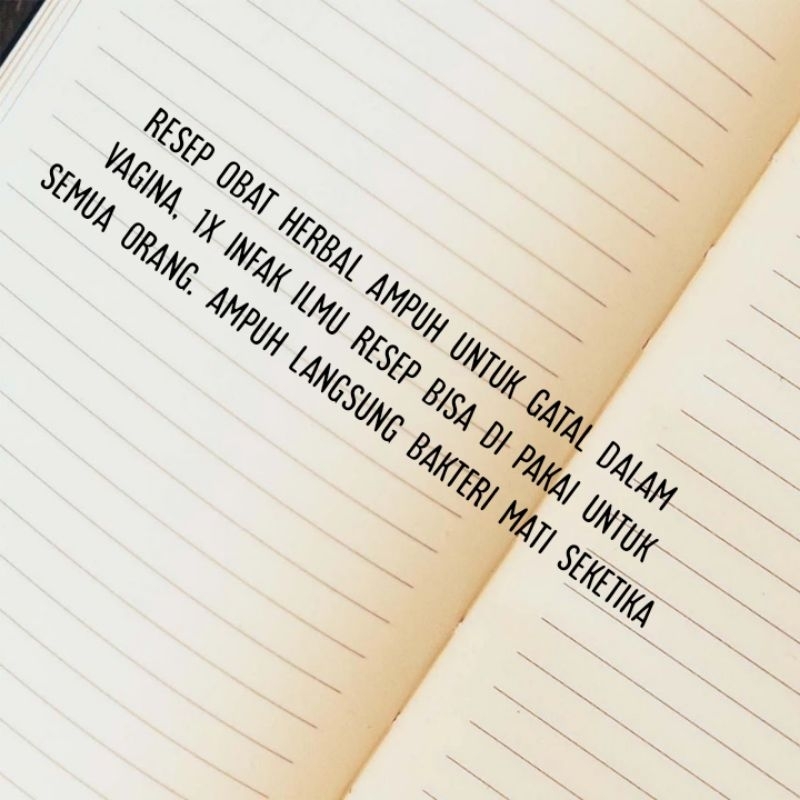 RESEP OBAT HERBAL AMPUH UNTUK GATAL DALAM
VAGINA, 1X INFAK ILMU RESEP BISA DI PAKAI UNTUK
SEMUA ORANG. AMPUH LANGSUNG BAKTERI MATI SEKETIKA